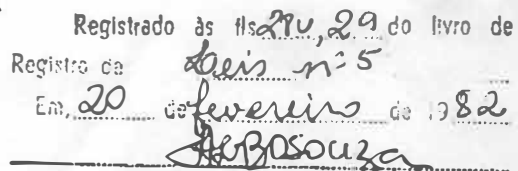 Registrado às fls 28v, 29 do livro de
Registro de Leis nº 5
Em, 20 de fevereiro de 1982